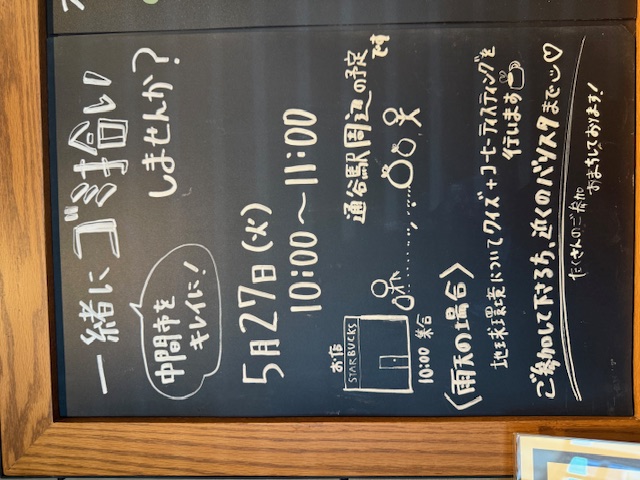 一緒に ゴミ拾い
しませんか？
中間市を
キレイに！
5月27日(火)
10:00〜11:00
お店
STARBUCKS
10:00 集合
通谷駅周辺の予定
です
〈雨天の場合〉
地球環境についてクイズ+コーヒーテイスティングを
行います
ご参加して下さる方、近くのバリスタまで♡
たくさんのご参加
おまちしております！